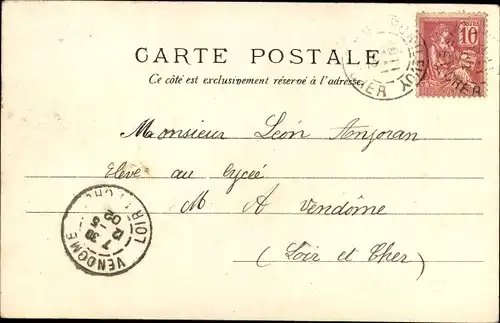 CARTE POSTALE
Ce côté est exclusivement réservé à l'adresse.
POSTES
10
CHER
Monsieur Léon Anjoran
Elève au lycée
M A Vendôme
(Loir et Cher)
VENDOME
LOIR
7 30
12 -5
02